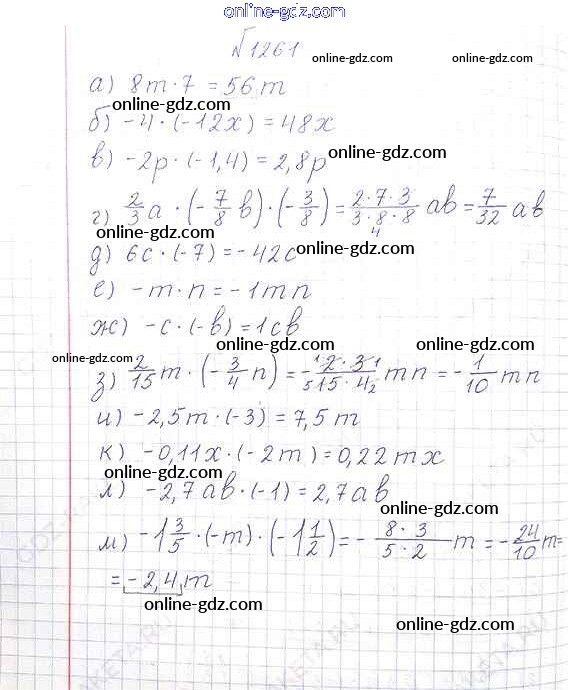 online-gdz.com
№1261
online-gdz.com
а) 8m · 7 = 56m
online-gdz.com
б) -4 · (-12x) = 48x
в) -2p · (-1,4) = 2,8p online-gdz.com
online-gdz.com
г) 2/3 a · (-7/8 b) · (-3/8) = 2·7·3/3·8·8 ab = 7/32 ab
4
д) 6c · (-7) = -42c online-gdz.com
е) -m · n = -1mn
ж) -c · (-b) = 1cb
online-gdz.com online-gdz.com
з) 2/15 m · (-3/4 n) = -1 2·3 1/5 15·4 2 mn = -1/10 mn
и) -2,5m · (-3) = 7,5m
к) -0,11x · (-2m) = 0,22mx
online-gdz.com
л) -2,7ab · (-1) = 2,7ab
online-gdz.com
м) -1 3/5 · (-m) · (-1 1/2) = - 8·3/5·2 m = -24/10 m=
= -2,4m
online-gdz.com
online-gdz.com